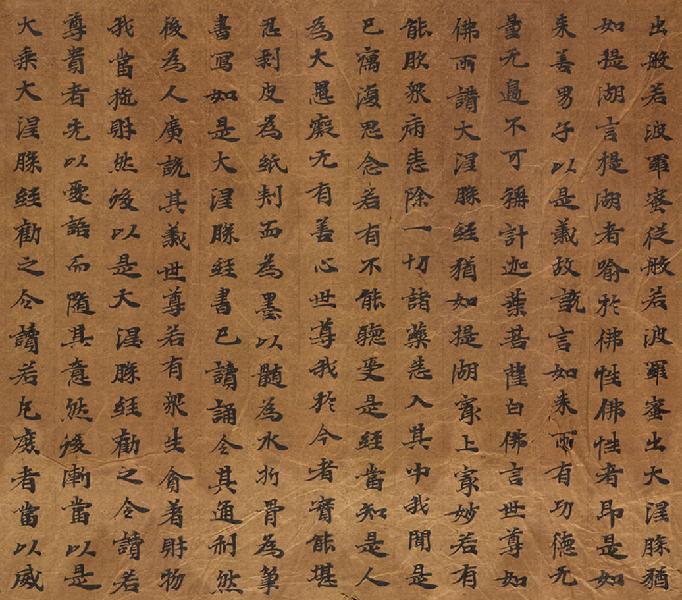 出般若波羅蜜從般若波羅蜜出大涅槃猶
如提湖言提湖者喻於佛性佛性者即是如
来善男子以是義故說言如来所有功德无
量无邊不可稱計迦葉菩薩白佛言世尊如
佛所讃大涅槃經猶如提湖冣上冣妙若有
能飲衆病悉除一切諸藥悉入其中我聞是
已竊復思念若有不能聽受是經當知是人
為大愚癡无有善心世尊我於今者實能堪
忍剥皮為紙刾血為墨以髓為水折骨為筆
書寫如是大涅槃經書已讀誦令其通利然
後為人廣說其義世尊若有衆生貪著財物
我當施財然後以是大涅槃經勸之令讀若
尊貴者先以愛語而隨其意然後漸當以是
大乘大涅槃經勸之令讀若凡庶者當以威